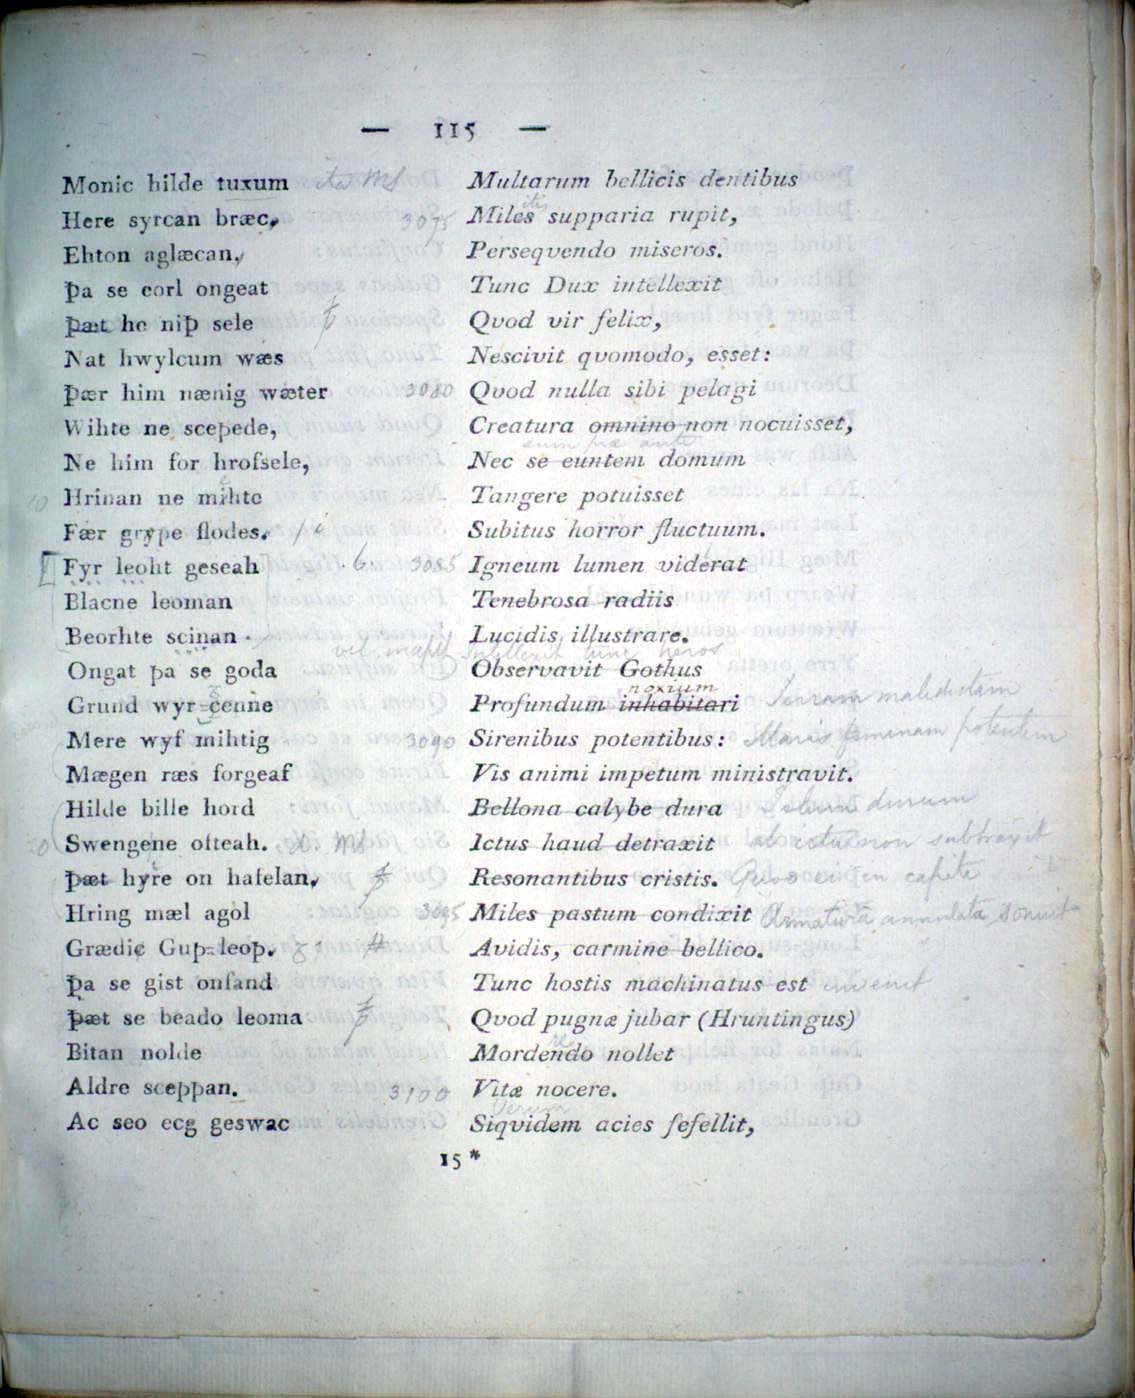 — 115 —
Monic hilde tuxum ita MS Multarum bellicis dentibus
Here syrcan bræc, 3075 Miles supparia rupit,
Ehton aglæcan, Perseqvendo miseros.
Þa se eorl ongeat Tunc Dux intellexit
Þæt he niþ sele Qvod vir felix,
Nat hwylcum wæs Nescivit qvomodo, esset:
Þær him nænig wæter 3080 Qvod nulla sibi pelagi
Wihte ne sceþede, Creatura omnino non nocuisset,
Ne him for hrofsele, Nec se euntem domum
Hrinan ne mihte Tangere potuisset
Fær grype flodes. Subitus horror fluctuum.
Fyr leoht geseah 3085 Igneum lumen viderat
Blacne leoman Tenebrosa radiis
Beorhte scinan Lucidis illustrare.
intellexit tunc heros
Ongat þa se goda Observavit Gothus
noxium
Grund wyr-cenne Profundum inhabitari Terram maledictam
Mere wyf mihtig 3090 Sirenibus potentibus: Maris feminam potentem
Mægen ræs forgeaf Vis animi impetum ministravit.
Hilde bille hord Bellona calybe dura Telum durum
Swengene ofteah. MS Ictus haud detraxit ab ictu non subtraxit
Þæt hyre on hafelan, Resonantibus cristis. in capite
Hring mæl agol 3095 Miles pastum condixit Armatura annulata sonuit
Grædic Guþ-leoþ. Avidis, carmine bellico.
Þa se gist onfand Tunc hostis machinatus est invenit
Þæt se beado leoma Qvod pugnæ jubar (Hruntingus)
Bitan nolde Mordendo nollet
Aldre sceþþan. 3100 Vitæ nocere.
Verum
Ac seo ecg geswac Siqvidem acies fefellit,
15*